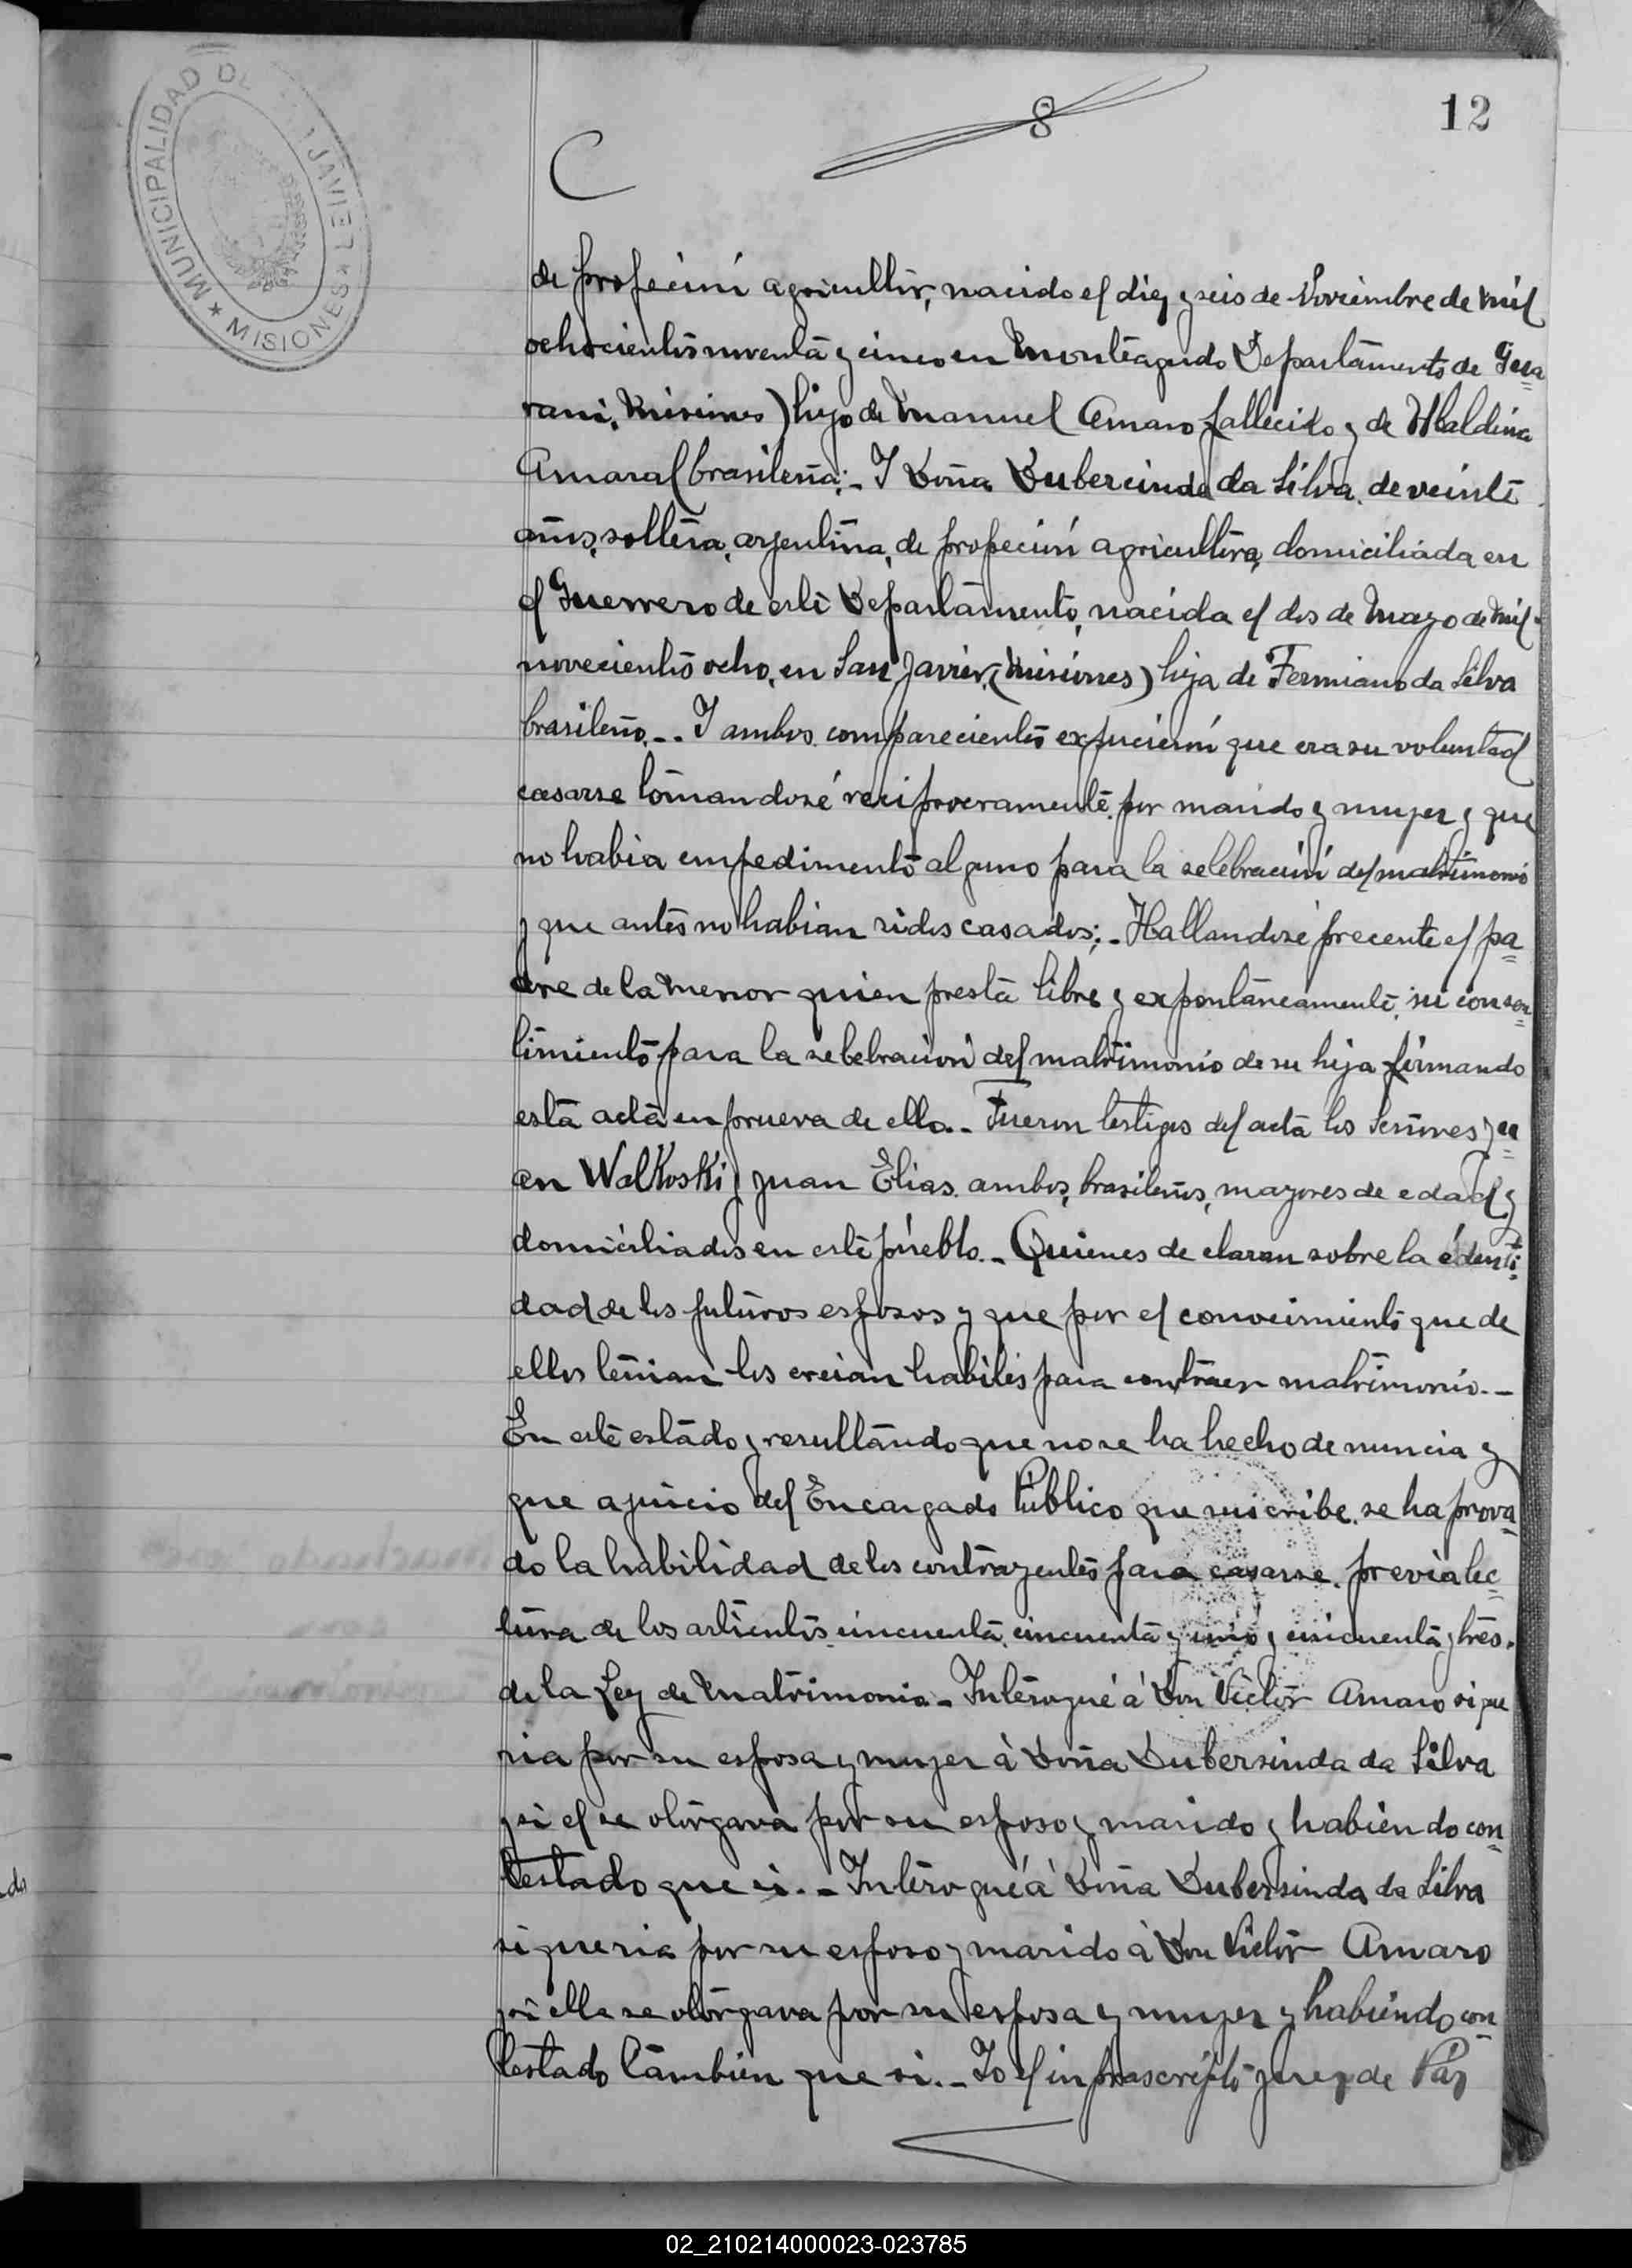 12
8
MUNICIPALIDAD DE JAVIER
★ MISIONES ★
de profecion agricultor, nacido el diez y seis de Noviembre de mil
ochocientos noventa y cinco en Monteagudo Departamento de Gua=
rani, Misiones) hijo de Manuel Amaro fallecido y de Ubaldina
Amaral brasileña;- I Doña Dubercinda da Silva, de veinte
años, soltera, arjentina, de profecion agricultora, domiciliada en
el Guerrero de este Departamento, nacida el dos de Mayo de mil
novecientos ocho, en San Javier, (Misiones) hija de Fermiano da Silva
brasileño.-. I ambos comparecientes expucieron que era su voluntad
casarse tomandosé reciprocramente por marido y mujer y que
no habia empedimento alguno para la selebracion del matrimonio
y que antes no habian sidos casados;- Hallandosé precente el pa=
dre de la menor quien presta libre y expontaneamente su consen=
timiento para la selebracion del matrimonio de su hija firmando
esta acta en prueva de ello.- Fueron testigos del acta los Señores Ju=
an Walkoski y Juan Elias, ambos, brasileños, mayores de edad y
domiciliados en este pueblo.- Quienes declaran sobre la edenti=
dad de los futuros esposos y que por el conocimiento que de
ellos tenian los creian habiles para contraer matrimonio.-
En este estado y resultando que no se ha hecho denuncia y
que a juicio del Encargado Publico que suscribe, se ha prova=
do la habilidad de los contrayentes para casarse, previa lec=
tura de los articulos cincuenta, cincuenta y uno y cincuenta y tres.
de la Ley de Matrimonio- Interogué á Don Victor Amaro si que
ria por su esposa y mujer á Doña Dubersinda da Silva
y si el se otorgava por su esposo y marido y habiendo con=
testado que si.- Interogué á Doña Dubersinda da Silva
si queria por su esposo y marido á Don Victor Amaro
y si ella se otorgava por su esposa y mujer y habiendo con=
testado tambien que si.- Io el infrascripto Juez de Paz
02_210214000023-023785